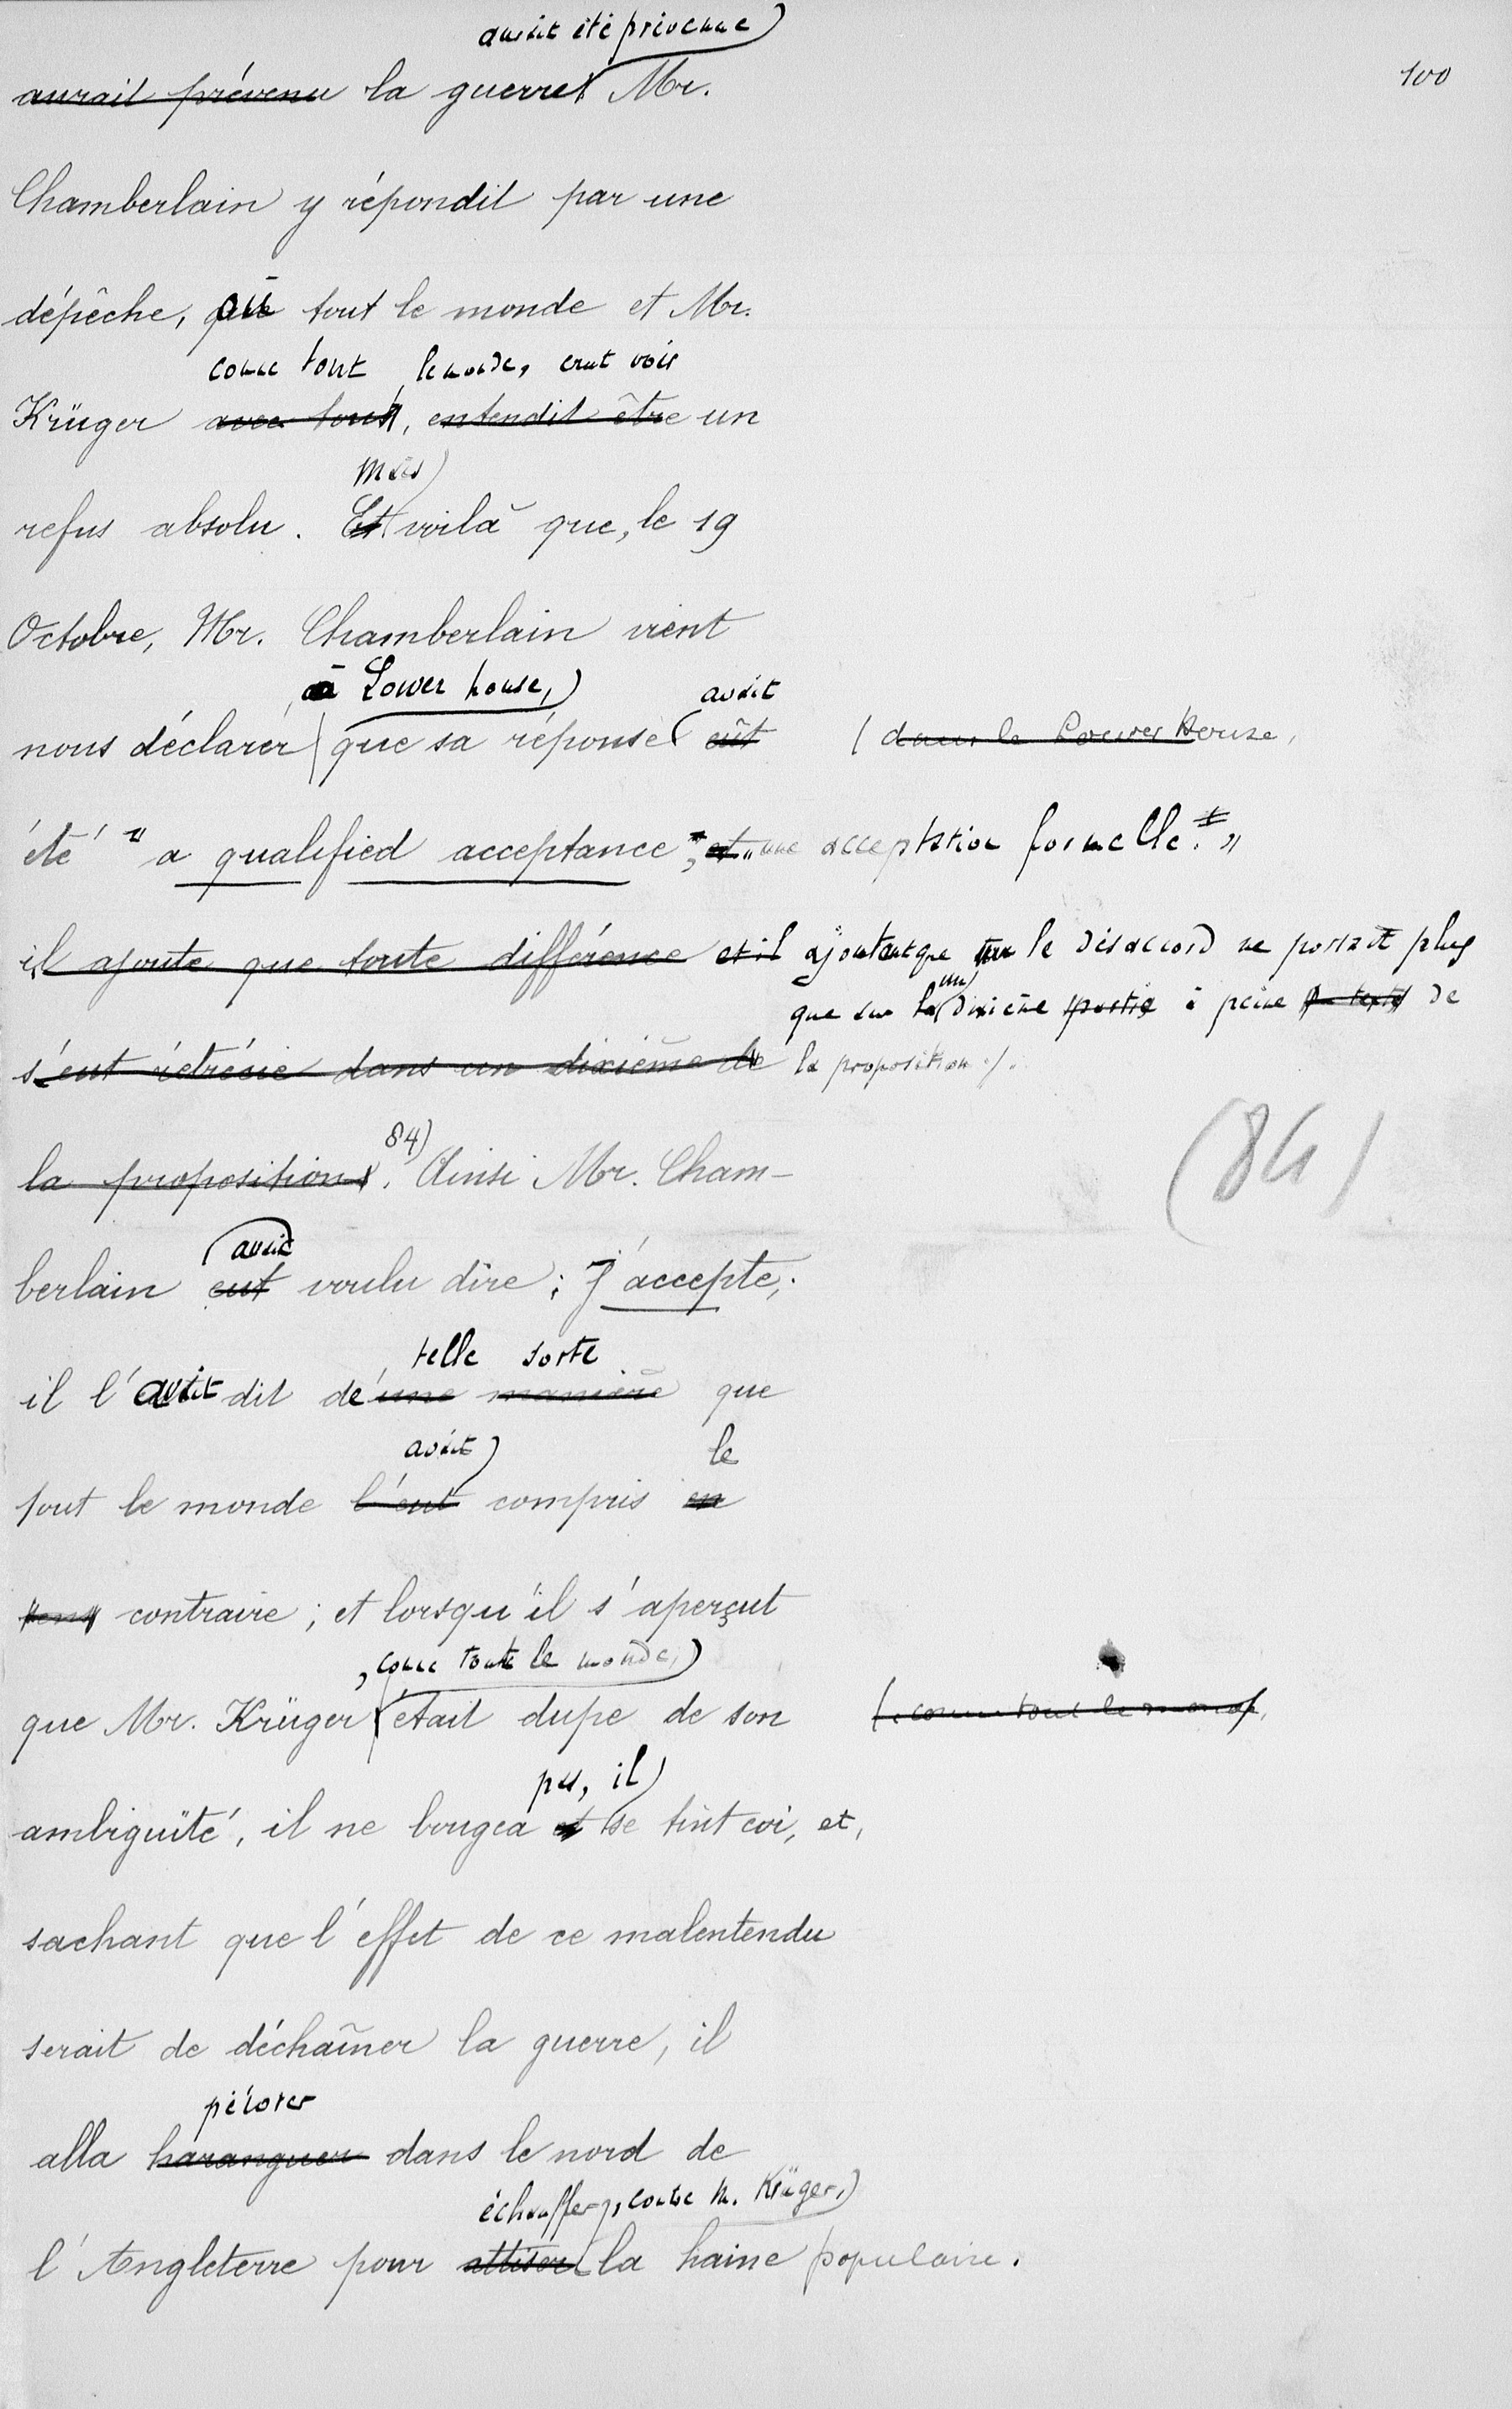 aurait été prévenue
aurait prévenu la guerre Mr.
100
Chamberlain y répondit par une
dépêche, où tout le monde et Mr.
comme tout le monde, crut voir
Krüger avec tout, entendit être un
mais
refus absolu. Et voilà que, le 19
Octobre, Mr. Chamberlain vient
à Lower house, avait
nous déclarer que sa réponse eût (dans le Lower House,
été " a qualified acceptance", et "une acceptation formelle."
il ajoute que toute différence et il ajoutant que le désaccord ne portait plus
que sur la un dixième partie à peine du texte de
s'eut rétrécie dans un dixième de la proposition.
84)
la proposition. Ainsi Mr. Cham-
(84)
avait
berlain eut voulu dire: J'accepte;
telle sorte
il l'avait dit de une manière que
avait le
tout le monde l'eut compris en
sens contraire; et lorsqu'il s'aperçut
, comme tout le monde,
que Mr. Krüger était dupe de son (, comme tout le monde,
pas, il
ambiguïté, il ne bougea et se tint coi, et,
sachant que l'effet de ce malentendu
serait de déchaîner la guerre, il
pérorer
alla haranguer dans le nord de
échauffer, contre M. Krüger,
l'Angleterre pour attiser la haine populaire.